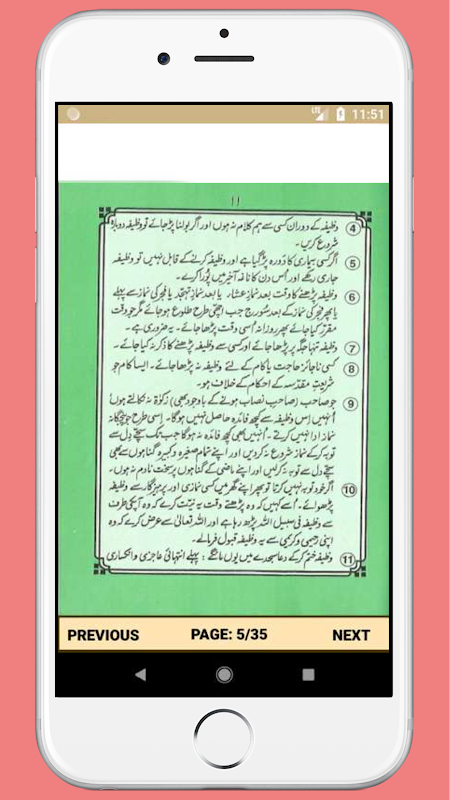 LTE 11:51
۱۱
④ وظیفہ کے دوران کسی سے ہم کلام نہ ہوں اور اگر بولنا پڑ جائے تو وظیفہ دوبارہ
شروع کریں۔
⑤ اگر کسی بیماری کا دَورہ پڑ گیا ہے اور وظیفہ کرنے کے قابل نہیں تو وظیفہ
جاری رکھے اور اُس دن کا ناغہ آخر میں پُورا کرے۔
⑥ وظیفہ پڑھنے کا وقت بعد نمازِ عشاء یا بعد نمازِ تہجّد یا فجر کی نماز سے پہلے
یا پھر فجر کی نماز کے بعد سُورج جب اچھی طرح طلوع ہو جائے مگر جو وقت
مقرر کیا جائے پھر روزانہ اُسی وقت پڑھا جائے۔ یہ ضروری ہے۔
⑦ وظیفہ تنہا جگہ پر پڑھا جائے اور کسی سے وظیفہ پڑھنے کا ذکر نہ کیا جائے۔
⑧ کسی ناجائز حاجت یا کام کے لئے وظیفہ نہ پڑھا جائے۔ ایسا کام جو
شریعتِ مقدّسہ کے احکام کے خلاف ہو۔
⑨ جو صاحب (صاحبِ نصاب ہونے کے باوجود بھی) زکوٰۃ نہ نکالتے ہوں
اُنہیں اِس وظیفہ سے کچھ فائدہ حاصل نہیں ہوگا۔ اِسی طرح جو پنجگانہ
نماز ادا نہیں کرتے۔ اُنہیں بھی کچھ فائدہ نہ ہوگا جب تک سچّے دل سے
توبہ کر کے نماز شروع نہ کر دیں اور اپنے تمام صغیرہ و کبیرہ گناہوں سے بھی
سچّے دل سے توبہ نہ کر لیں اور اپنے ماضی کے گناہوں پر سخت نادم نہ ہوں۔
⑩ اگر خود توبہ نہیں کرتا تو پھر اپنے گھر میں کسی نمازی اور پرہیزگار سے وظیفہ
پڑھوائے۔ اُسے کہیں کہ وہ پڑھتے وقت یہ نیّت کرے کہ وہ آپکی طرف
سے وظیفہ فی سبیل اللہ پڑھ رہا ہے اور اللہ تعالیٰ سے عرض کرے کہ وہ
اپنی رحیمی و کریمی سے یہ وظیفہ قبول فرمالے۔
⑪ وظیفہ ختم کر کے دعا سجدے میں یوں مانگے : پہلے انتہائی عاجزی و انکساری
PREVIOUS PAGE: 5/35 NEXT